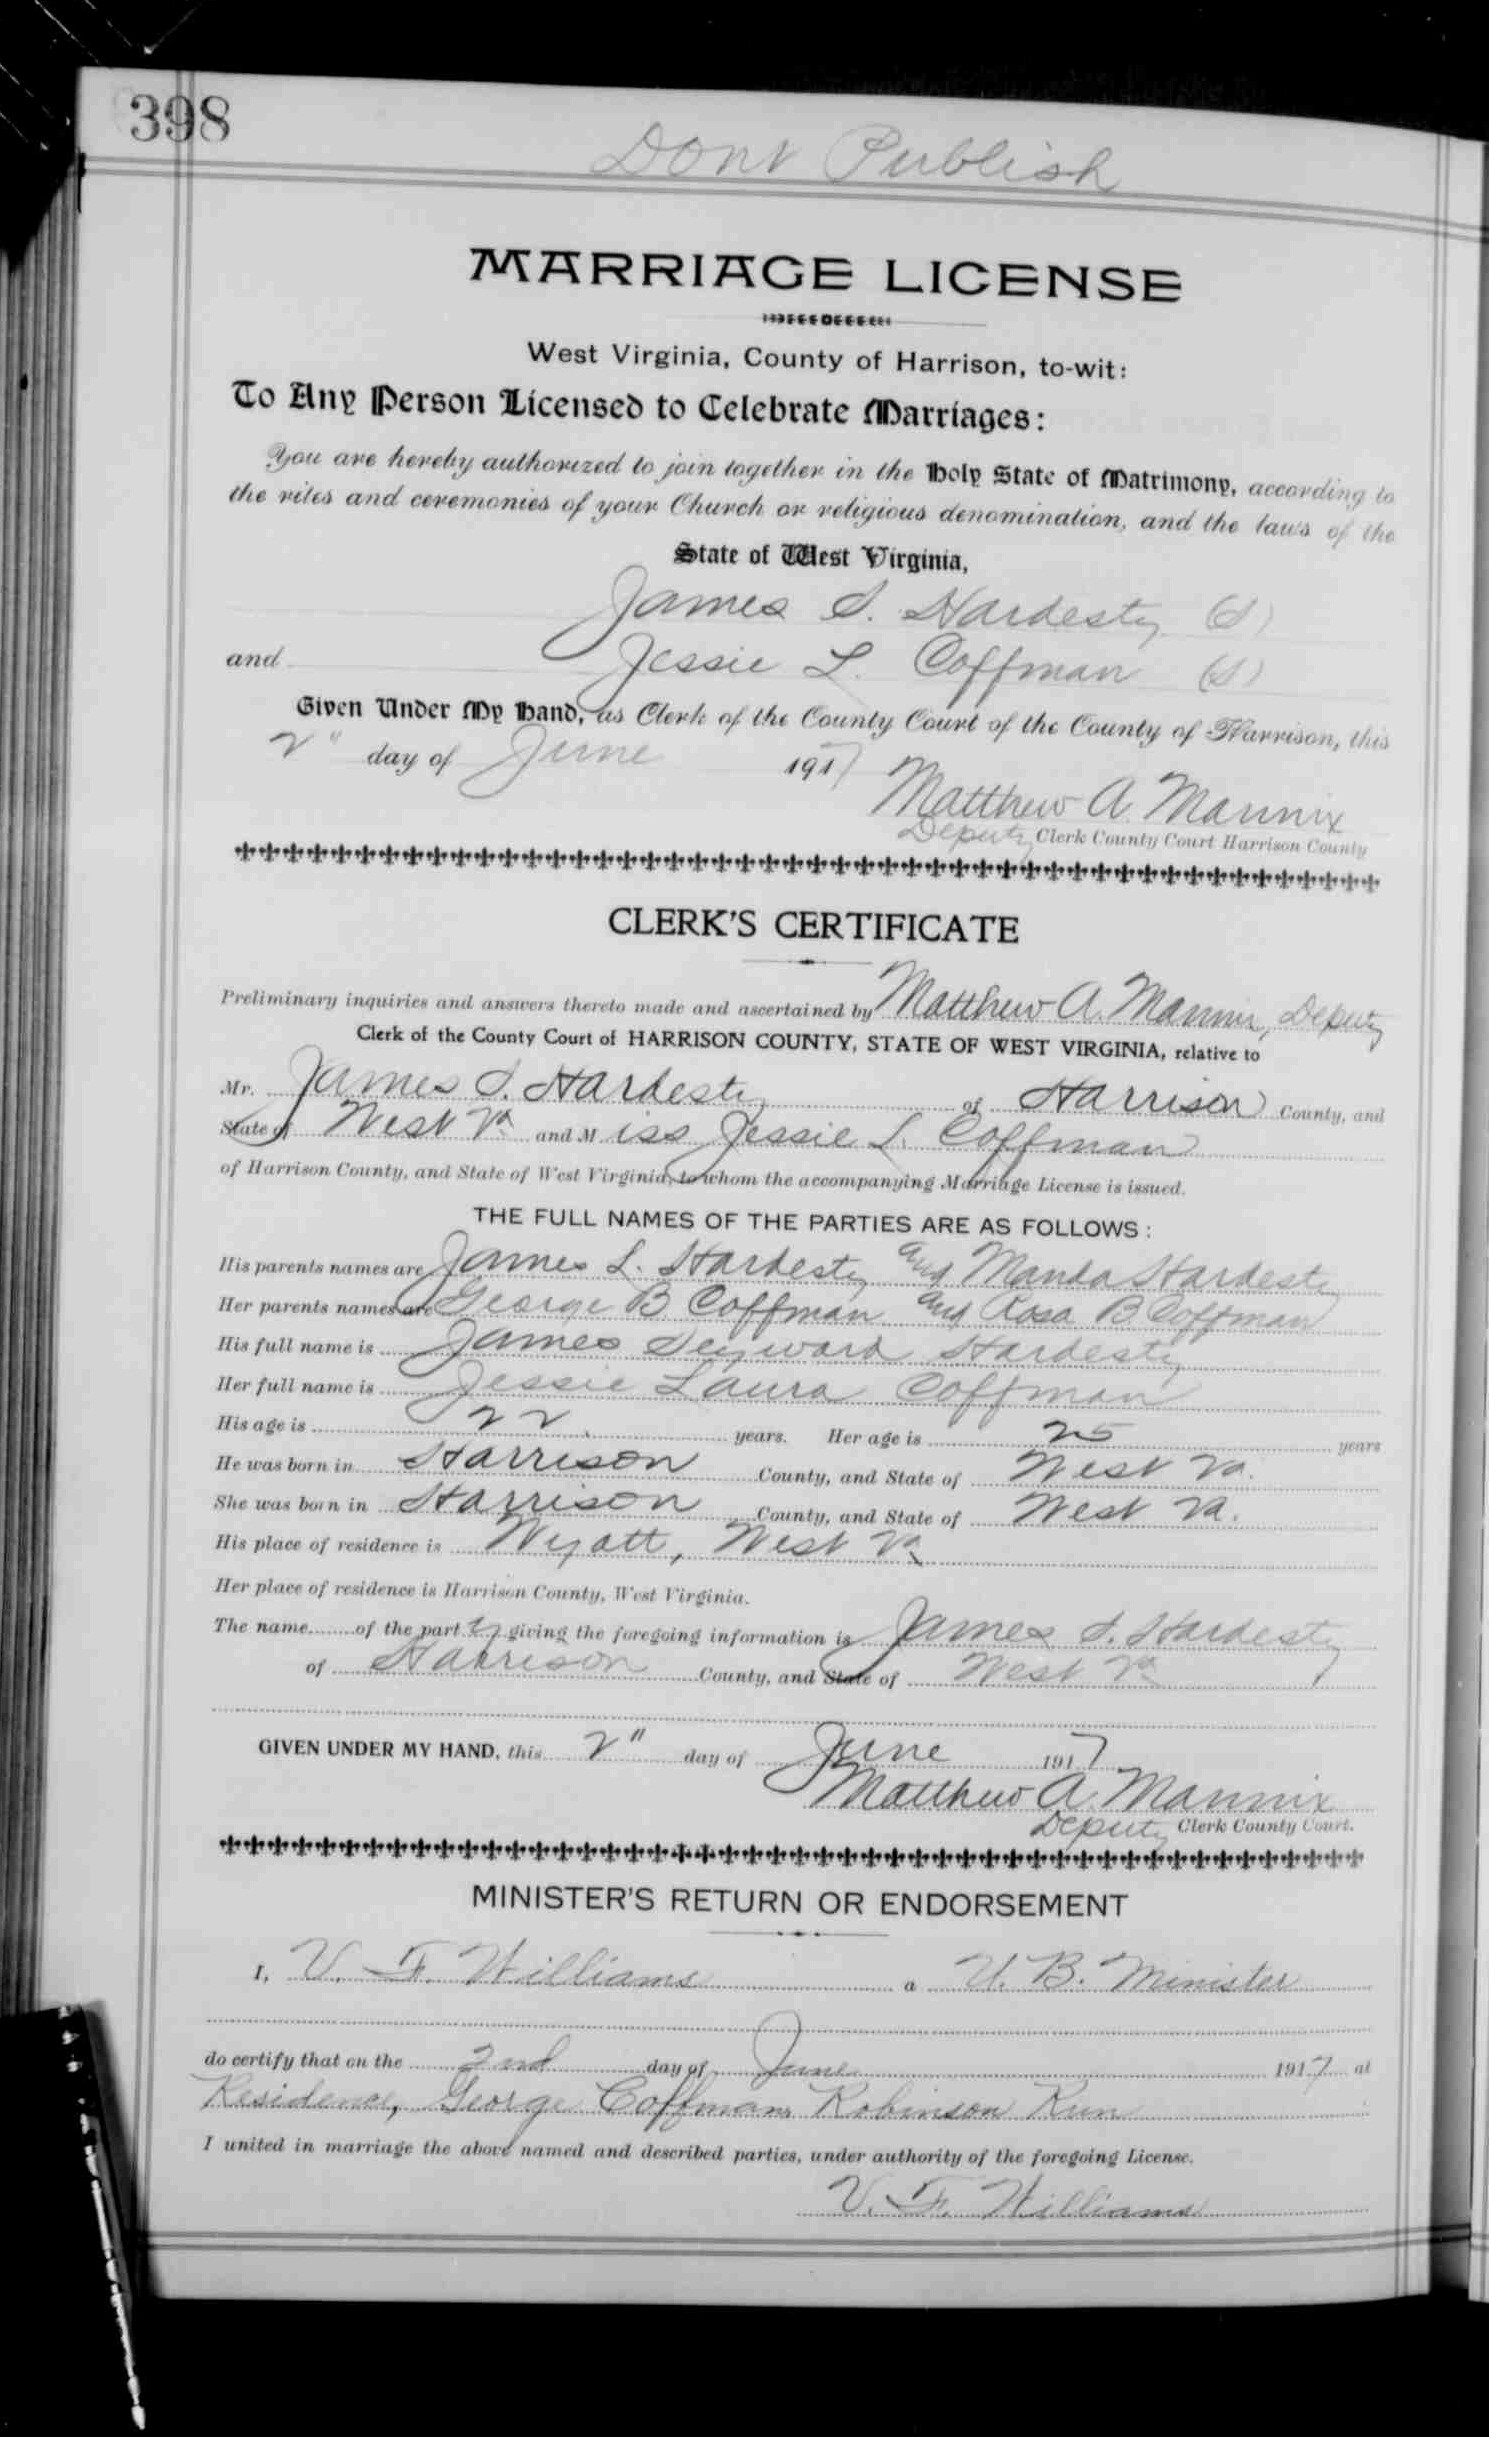 398
Dont Publish
MARRIAGE LICENSE
West Virginia, County of Harrison, to-wit:
To Any Person Licensed to Celebrate Marriages:
You are hereby authorized to join together in the Holy State of Matrimony, according to
the rites and ceremonies of your Church or religious denomination, and the laws of the
State of West Virginia,
James S. Hardesty (S)
and Jessie L. Coffman (S)
Given Under My Hand, as Clerk of the County Court of the County of Harrison, this
2" day of June 1917
Matthew A. Mannix
Deputy Clerk County Court Harrison County
CLERK'S CERTIFICATE
Preliminary inquiries and answers thereto made and ascertained by Matthew A. Mannix, Deputy
Clerk of the County Court of HARRISON COUNTY, STATE OF WEST VIRGINIA, relative to
Mr. James S. Hardesty of Harrison County, and
State of West Va and Miss Jessie L. Coffman
of Harrison County, and State of West Virginia, to whom the accompanying Marriage License is issued.
THE FULL NAMES OF THE PARTIES ARE AS FOLLOWS:
His parents names are James L. Hardesty and Manda Hardesty
Her parents names are George B Coffman and Rosa B Coffman
His full name is James Seyward Hardesty
Her full name is Jessie Laura Coffman
His age is 22 years. Her age is 25 years
He was born in Harrison County, and State of West Va.
She was born in Harrison County, and State of West Va.
His place of residence is Wyatt, West Va
Her place of residence is Harrison County, West Virginia.
The name of the party giving the foregoing information is James S. Hardesty
of Harrison County, and State of West Va
GIVEN UNDER MY HAND, this 2" day of June 1917
Matthew A. Mannix
Deputy Clerk County Court.
MINISTER'S RETURN OR ENDORSEMENT
I, V. F. Williams a U. B. Minister
do certify that on the 2nd day of June 1917 at
Residence, George Coffmans Robinson Run
I united in marriage the above named and described parties, under authority of the foregoing License.
V. F. Williams